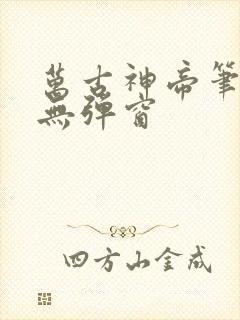 萬古神帝筆
無彈窗
四方山金成